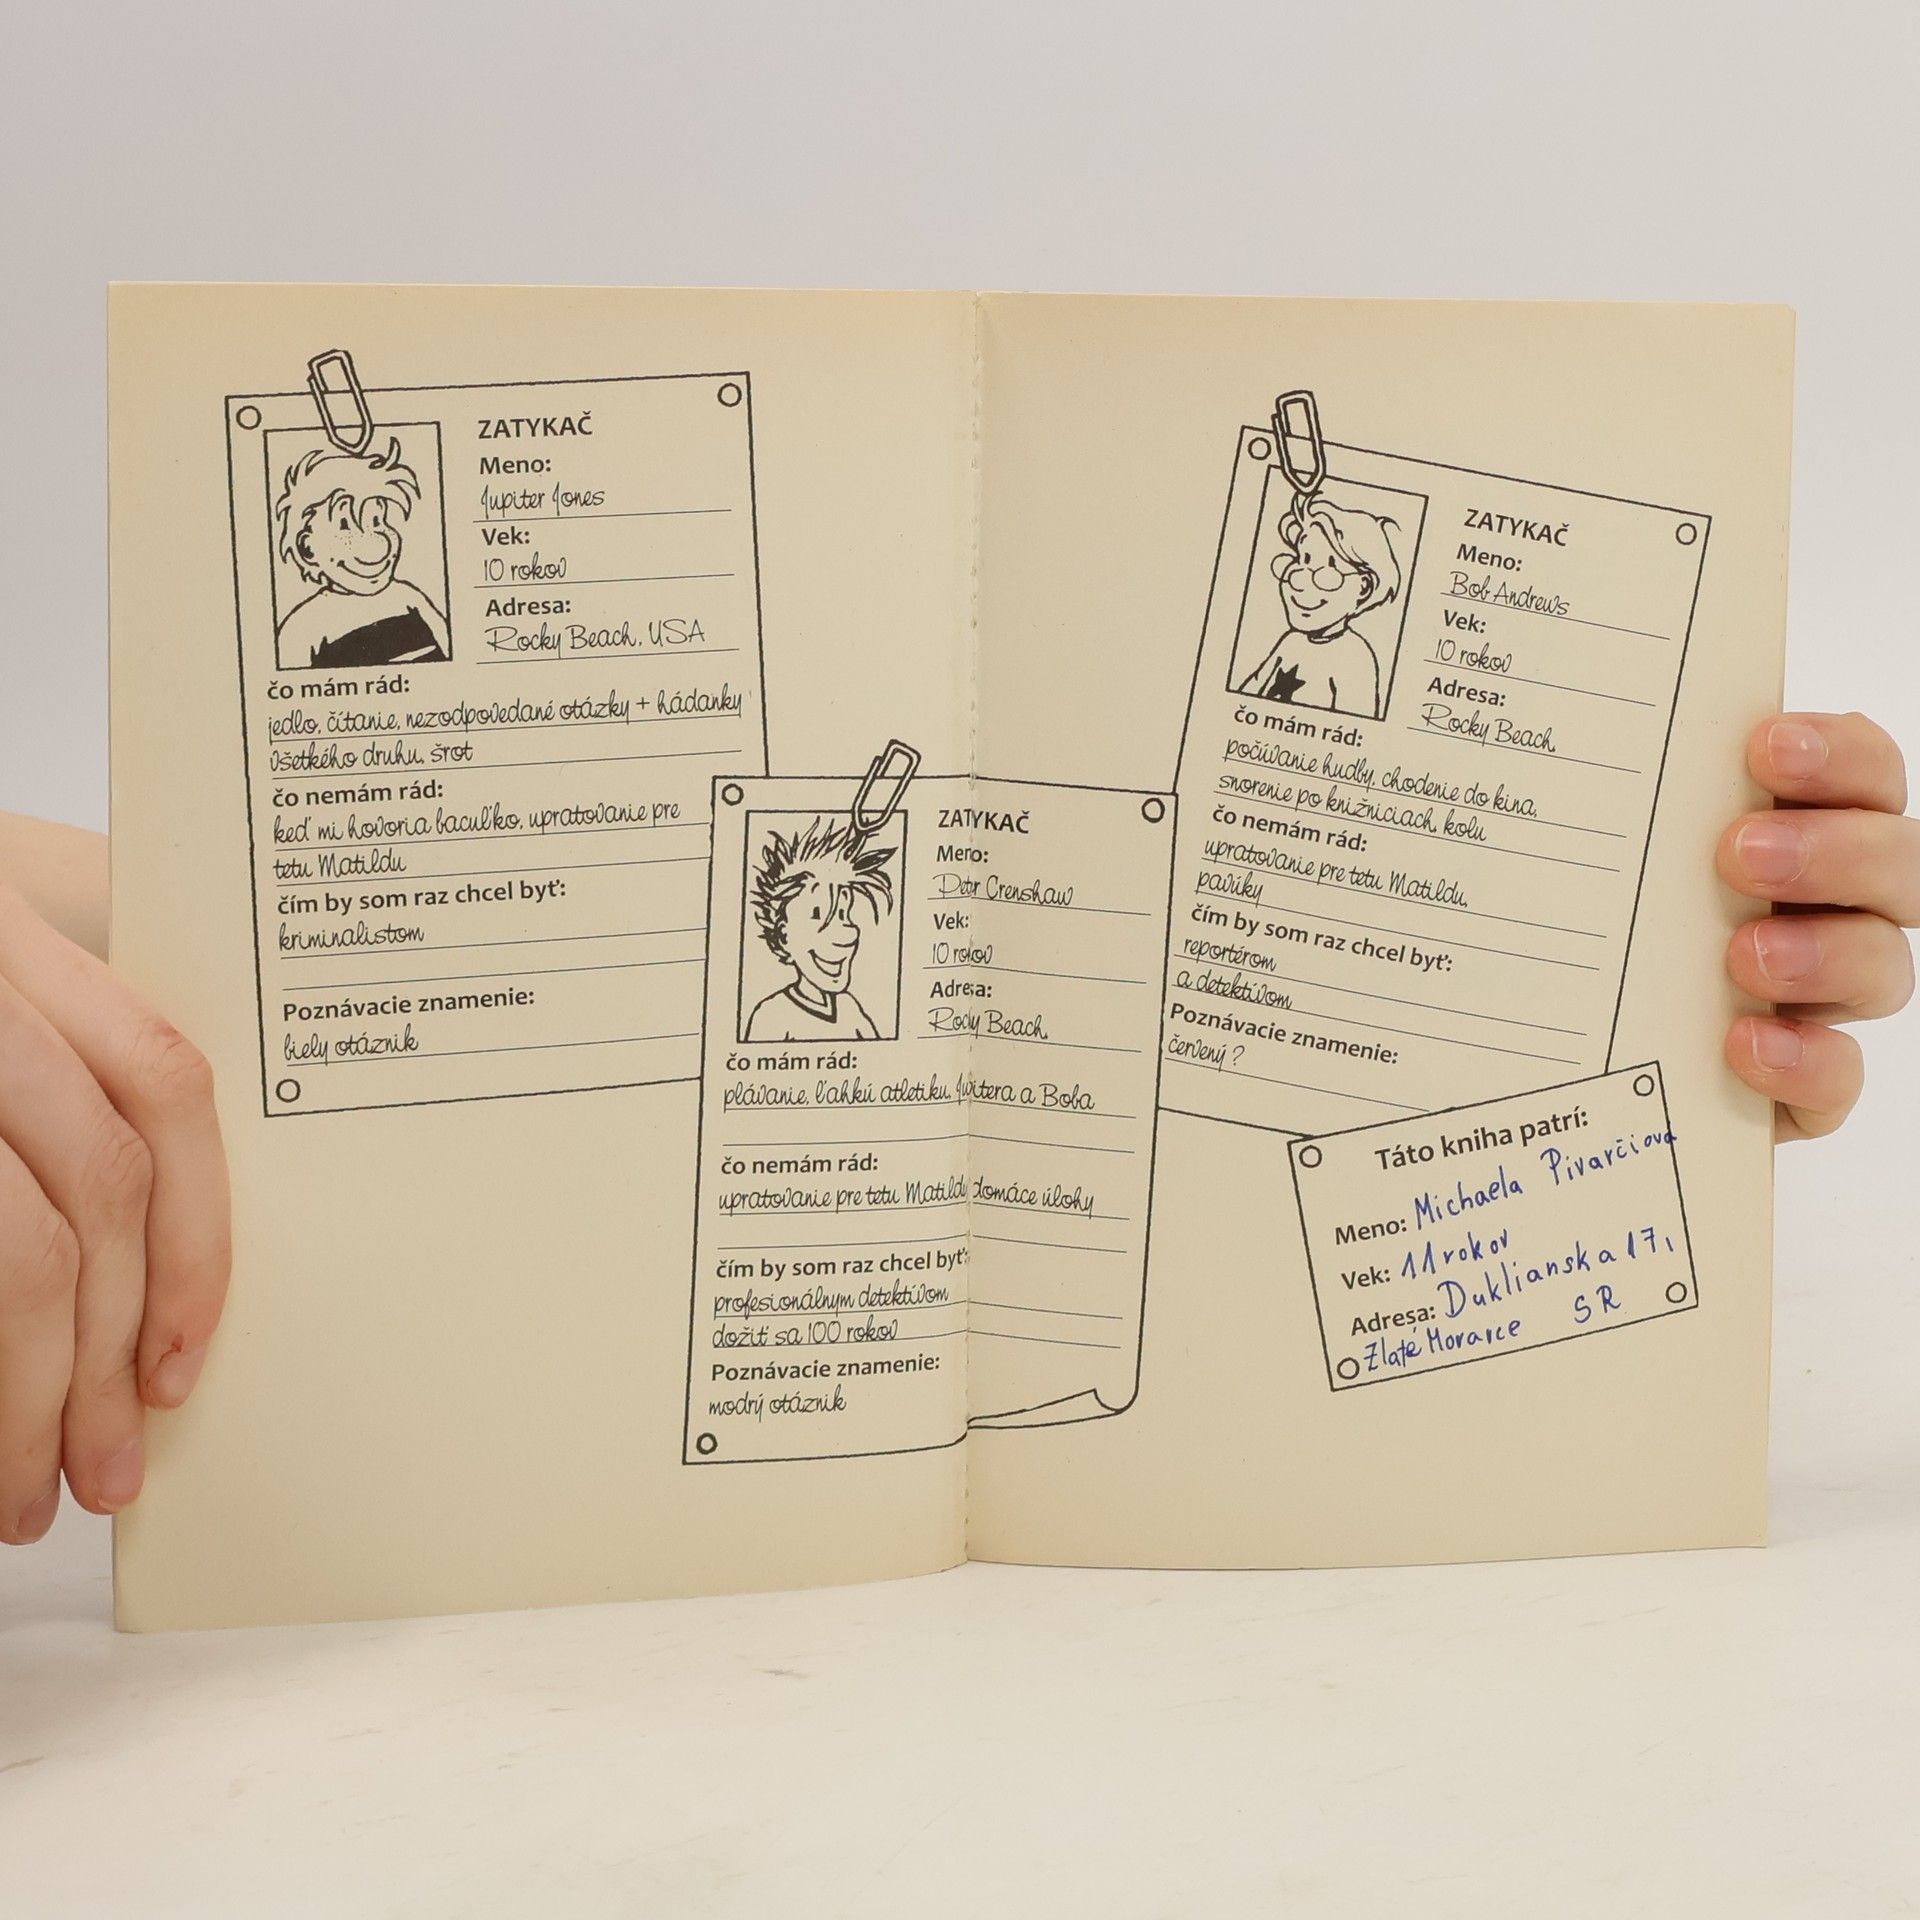 ZATYKAČ
Meno:
Jupiter Jones
Vek:
10 rokov
Adresa:
Rocky Beach, USA
čo mám rád:
jedlo, čítanie, nezodpovedané otázky + hádanky
všetkého druhu, šrot
čo nemám rád:
keď mi hovoria baculko, upratovanie pre
tetu Matildu
čím by som raz chcel byť:
kriminalistom
Poznávacie znamenie:
biely otáznik
ZATYKAČ
Meno:
Peter Crenshaw
Vek:
10 rokov
Adresa:
Rocky Beach,
čo mám rád:
plávanie, ľahkú atletiku, Jupitera a Boba
čo nemám rád:
upratovanie pre tetu Matildu, domáce úlohy
čím by som raz chcel byť:
profesionálnym detektívom
dožiť sa 100 rokov
Poznávacie znamenie:
modrý otáznik
ZATYKAČ
Meno:
Bob Andrews
Vek:
10 rokov
Adresa:
Rocky Beach,
čo mám rád:
počúvanie hudby, chodenie do kina,
snorenie po knižniciach, kolu
čo nemám rád:
upratovanie pre tetu Matildu,
pavúky
čím by som raz chcel byť:
reportérom
a detektívom
Poznávacie znamenie:
červený ?
Táto kniha patrí:
Meno: Michaela Pivarčiová
Vek: 11 rokov
Adresa: Duklianska 17,
Zlaté Moravce SR